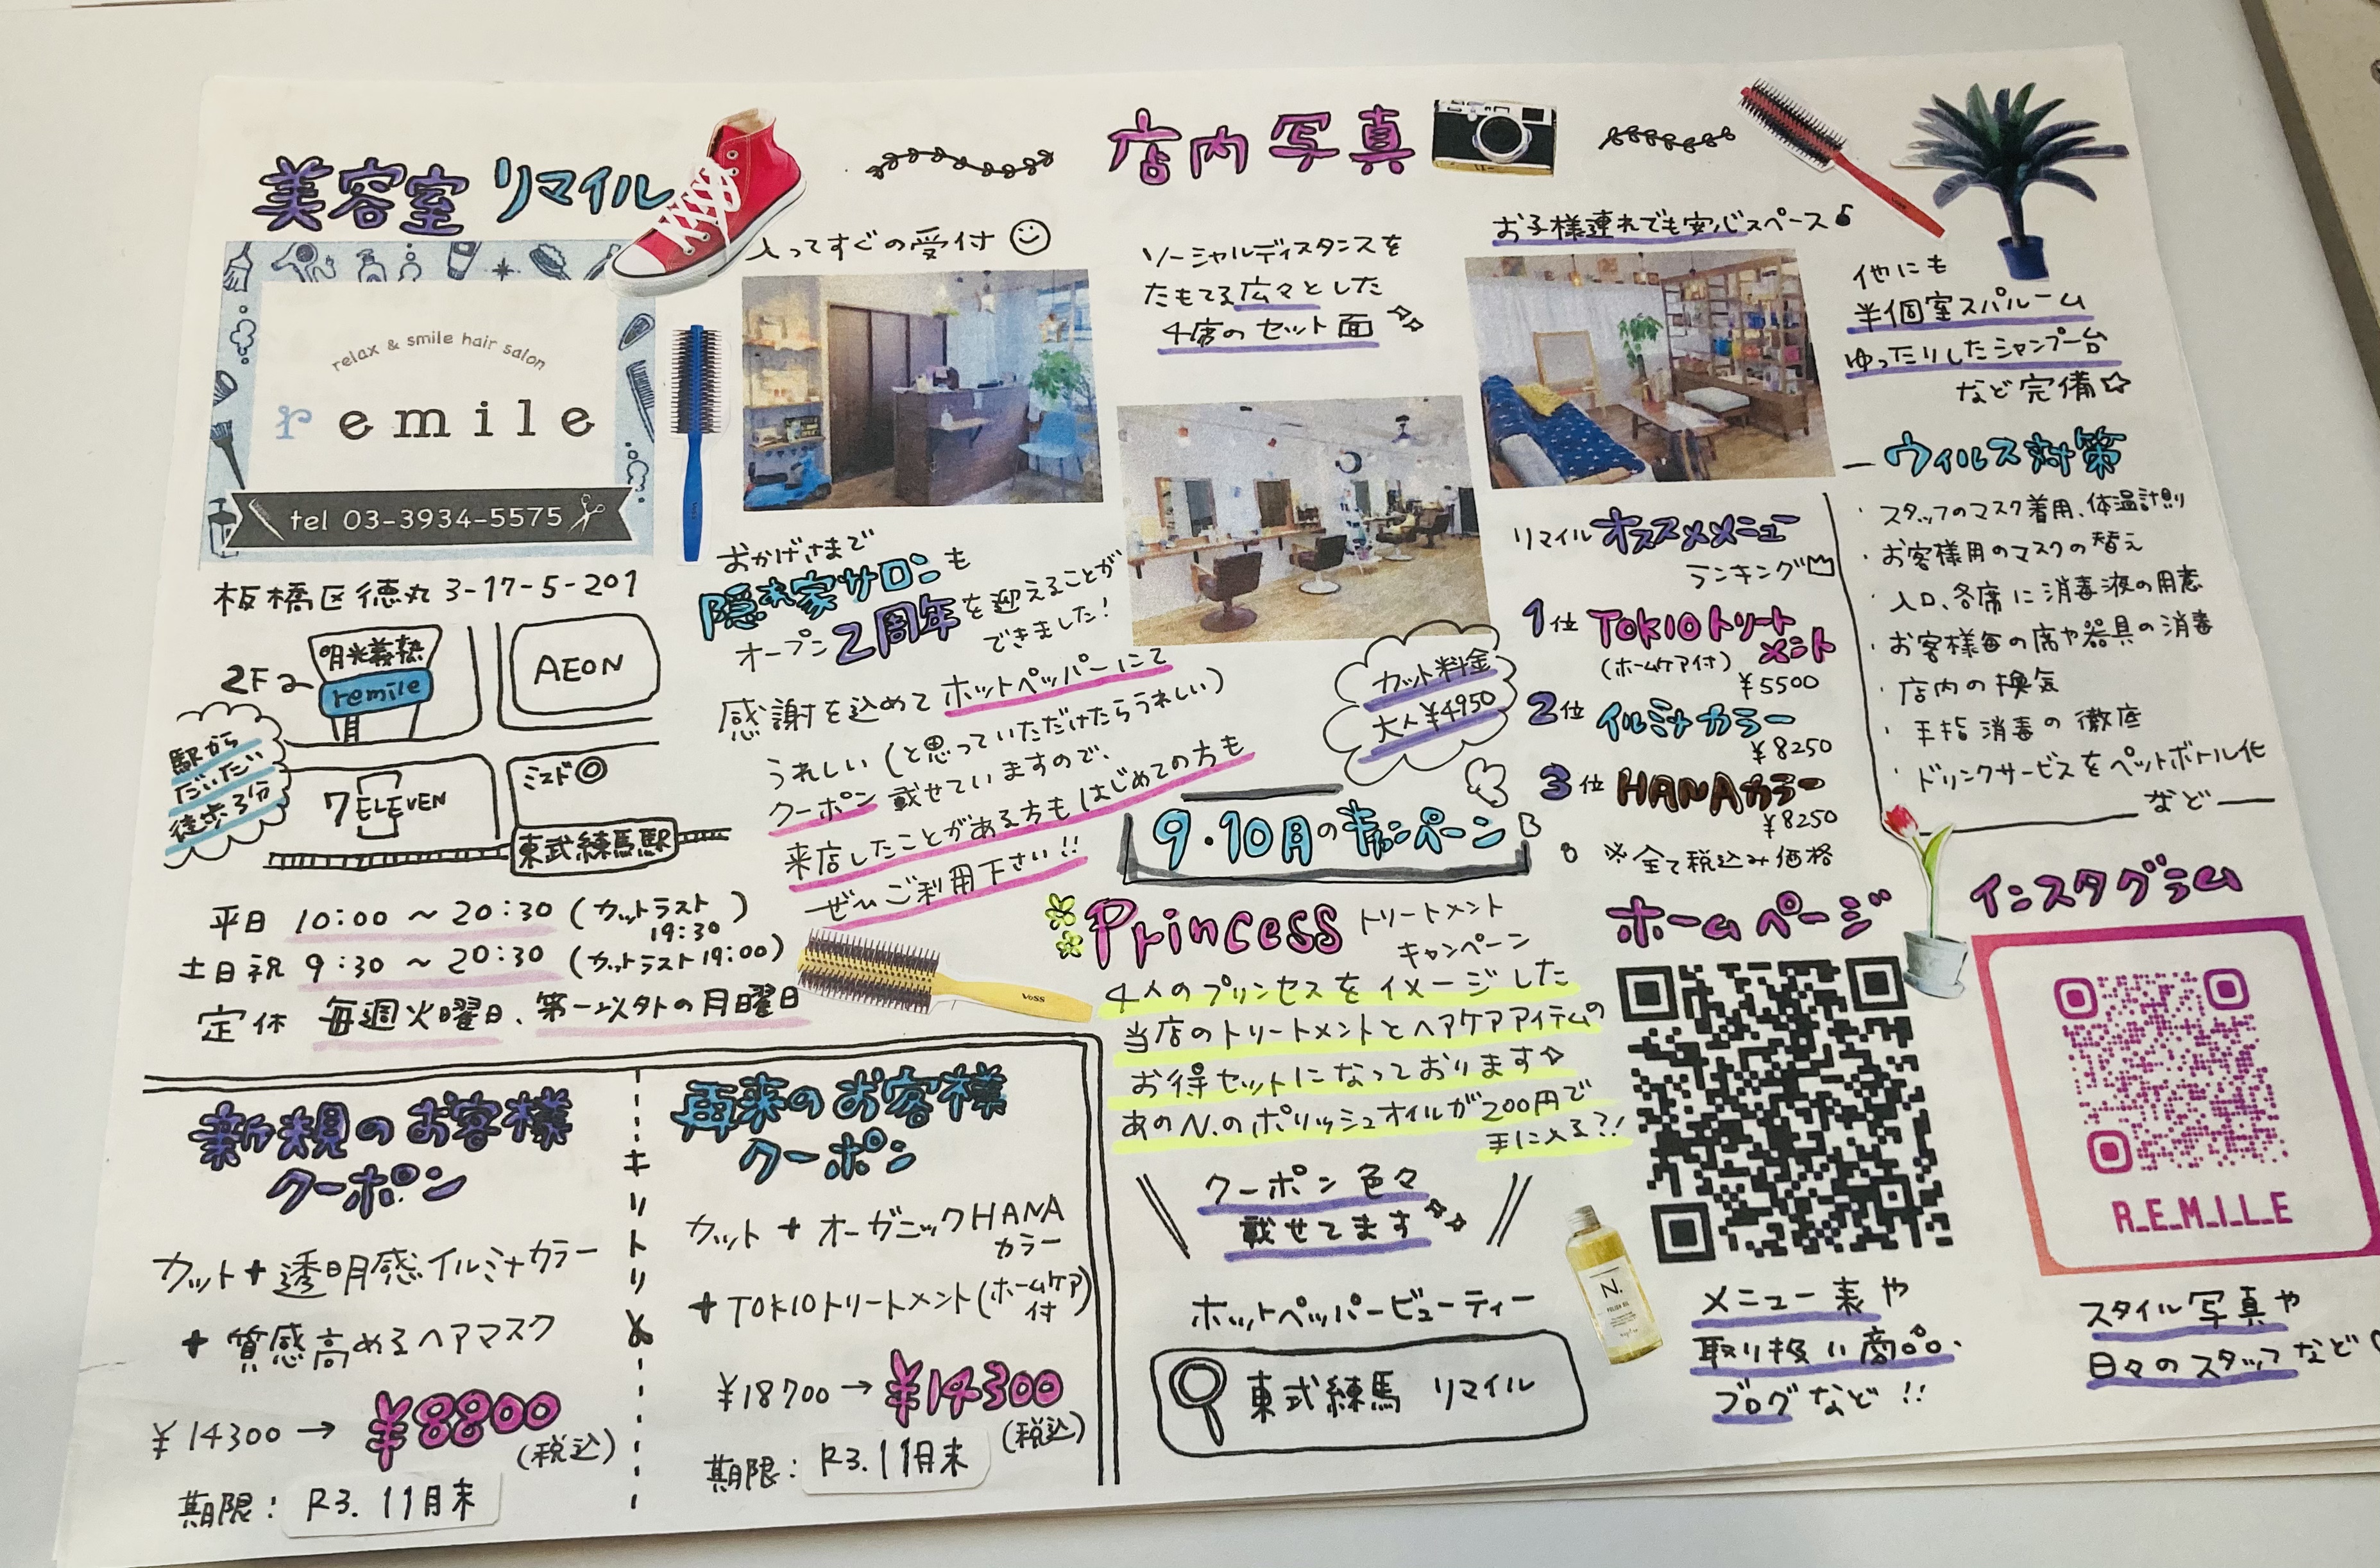 美容室 リマイル
relax & smile hair salon
remile
tel 03-3934-5575
板橋区徳丸 3-17-5-201
明光義塾
2F
remile
AEON
駅から
だいたい
徒歩3分
7 ELEVEN
ミスド◎
東武練馬駅
平日 10:00 ~ 20:30 (カットラスト 19:30)
土日祝 9:30 ~ 20:30 (カットラスト19:00)
定休 毎週火曜日、第一以外の月曜日
入ってすぐの受付
おかげさまで
隠れ家サロンも
オープン2周年を迎えることが
できました!
感謝を込めてホットペッパーにて
うれしい (と思っていただけたらうれしい)
クーポン 載せていますので、
来店したことがある方もはじめての方も
ぜひご利用下さい!!
店内写真
ソーシャルディスタンスを
たもてる広々とした
4席のセット面
お子様連れでも安心スペース♪
他にも
半個室スパルーム
ゆったりしたシャンプー台
など完備☆
ウィルス対策
・スタッフのマスク着用、体温計測
・お客様用のマスクの替え
・入口、各席に消毒液の用意
・お客様毎の席や器具の消毒
・店内の換気
・手指消毒の徹底
・ドリンクサービスをペットボトル化
など
カット料金
大人¥4950
リマイル オススメメニュー
ランキング
1位 TOKIOトリートメント
(ホームケア付)
¥5500
2位 イルミナカラー
¥8250
3位 HANAカラー
¥8250
※全て税込み価格
9・10月のキャンペーン
Princess トリートメント
キャンペーン
4人のプリンセスをイメージした
当店のトリートメントとヘアケアアイテムの
お得セットになっております☆
あのN.のポリッシュオイルが200円で
手に入る?!
クーポン色々
載せてます
ホットペッパービューティー
東武練馬 リマイル
ホームページ
メニュー表や
取り扱い商品、
ブログなど!!
インスタグラム
R_E_M_I_L_E
スタイル写真や
日々のスタッフなど
新規のお客様
クーポン
カット+透明感イルミナカラー
+質感高めるヘアマスク
¥14300→¥8800
(税込)
期限: R3.11月末
キリトリ
再来のお客様
クーポン
カット+オーガニックHANA
カラー
+TOKIOトリートメント(ホームケア付)
¥18700→¥14300
(税込)
期限: R3.11月末
VOSS
N.
POLISH OIL